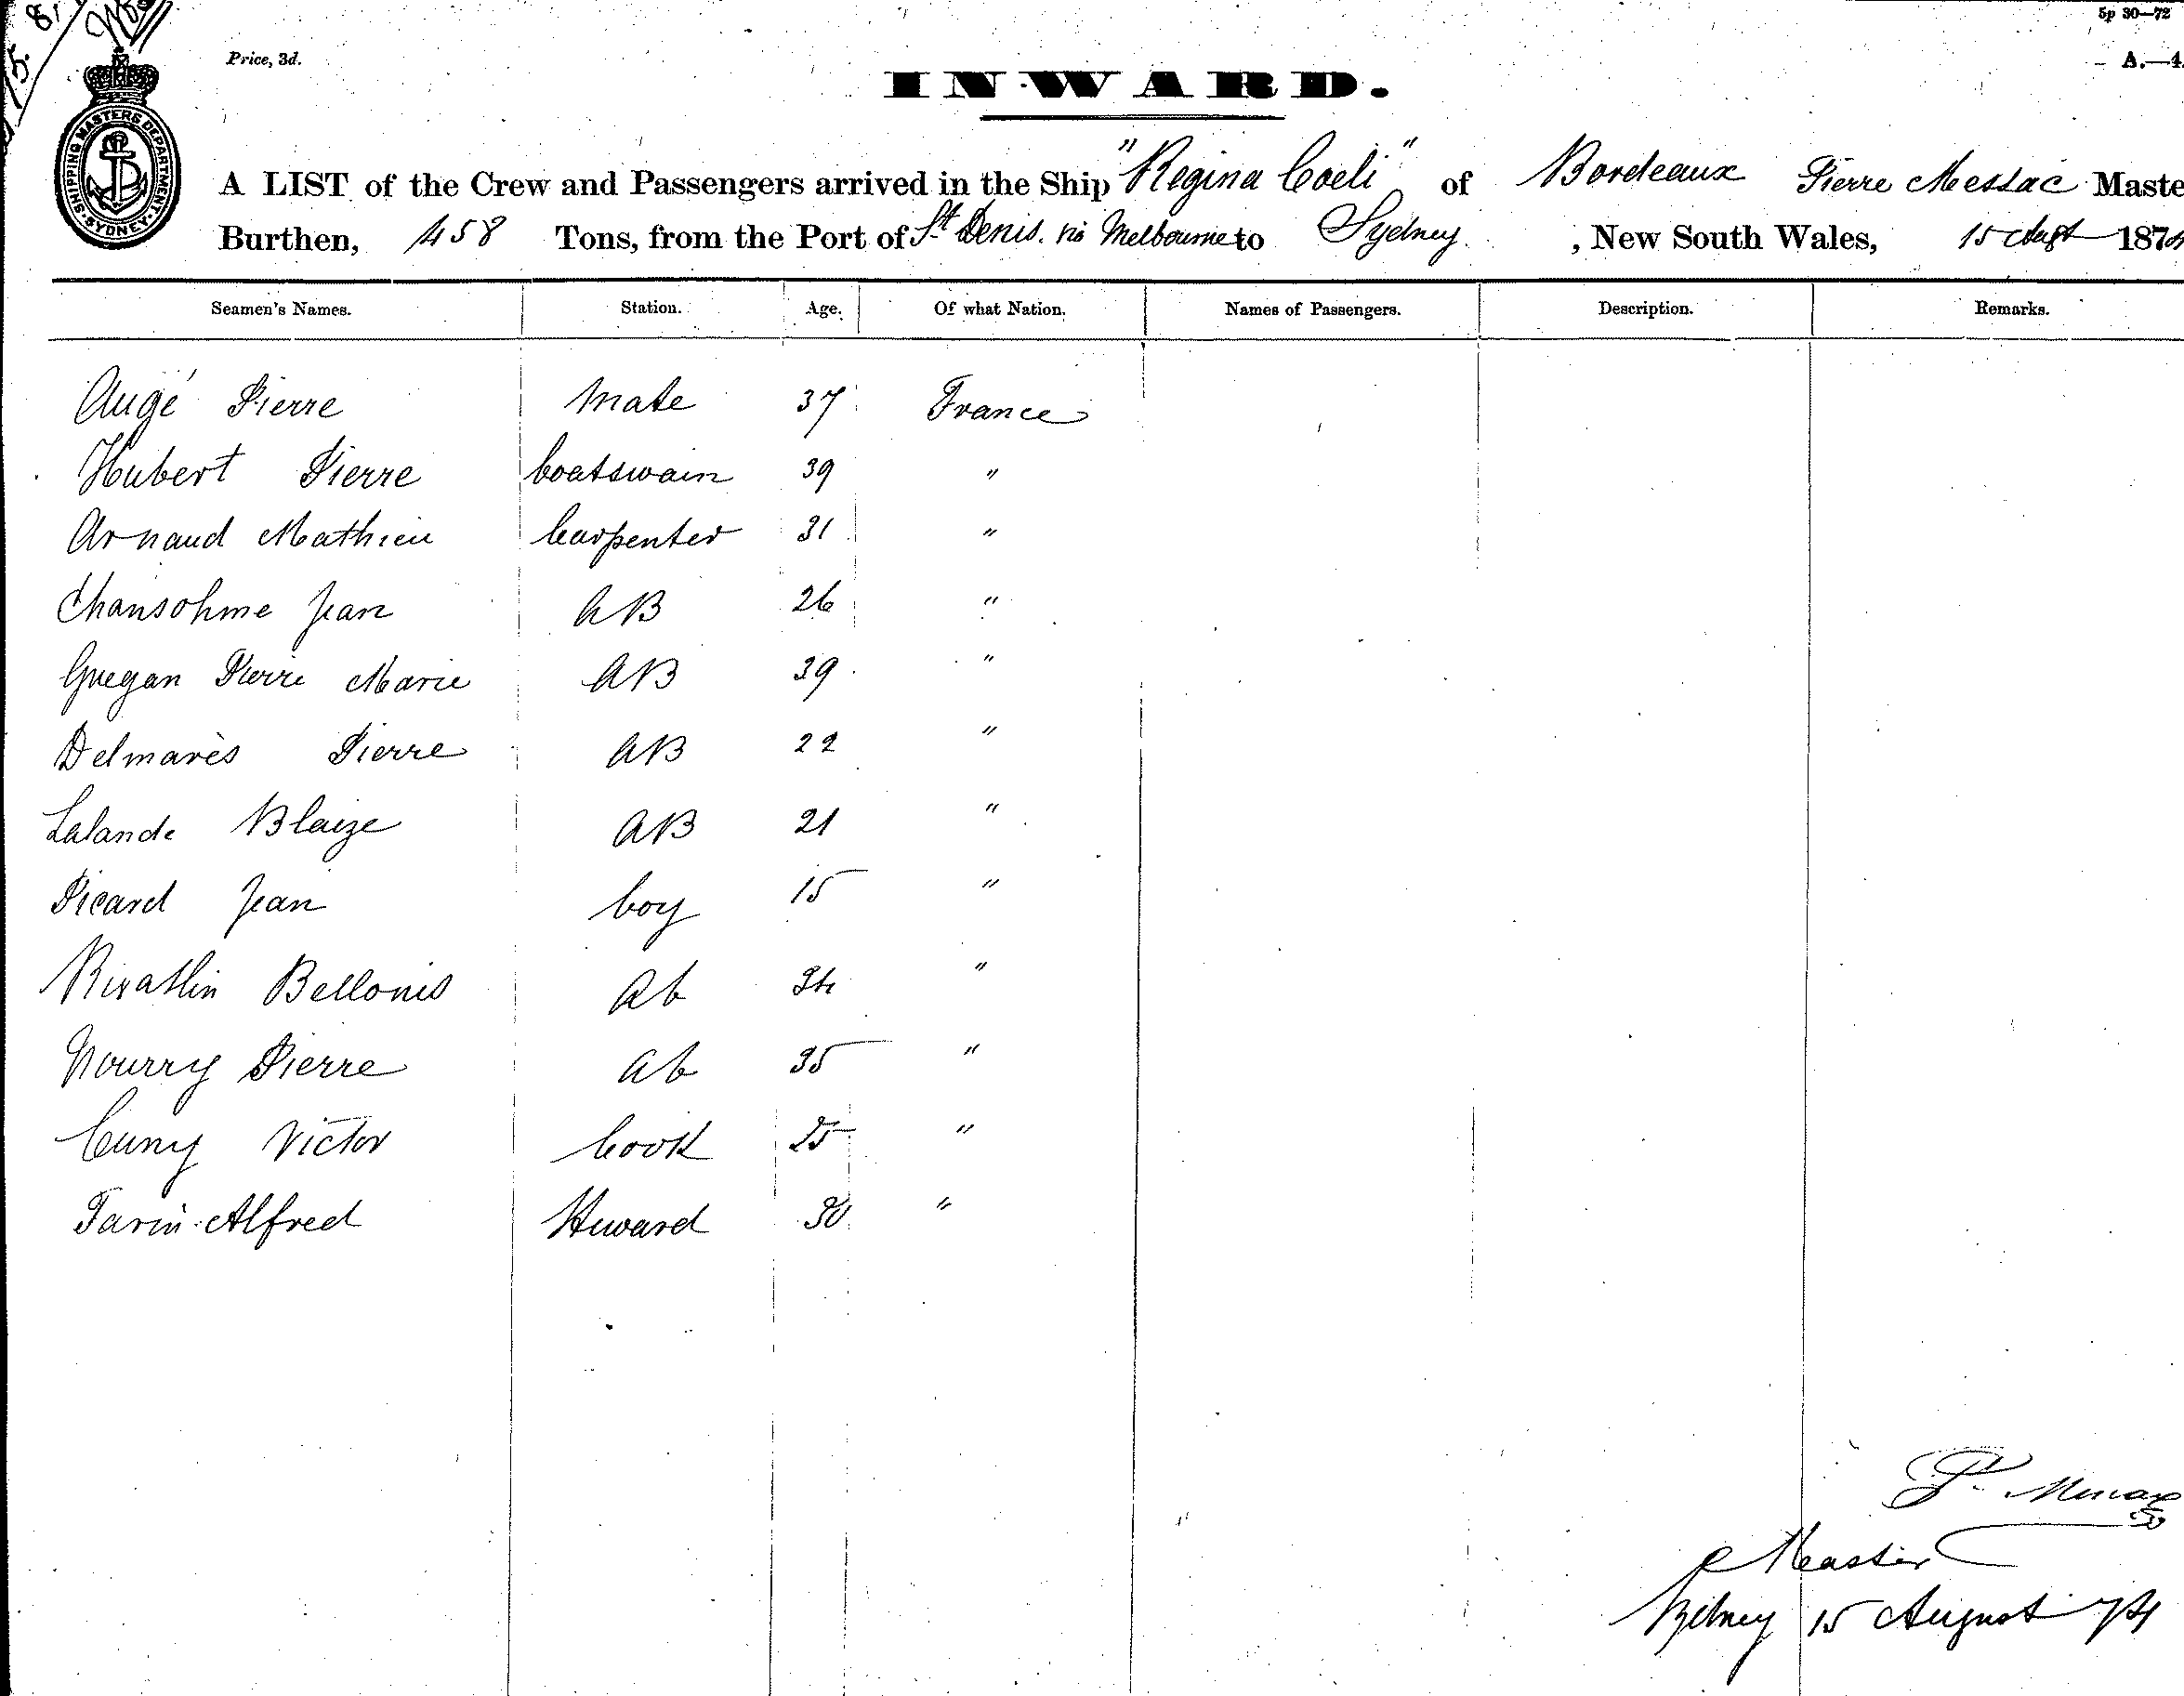 5p 30—72
Price, 3d.
A.—4
INWARD.
SHIPPING MASTERS DEPARTMENT SYDNEY
A LIST of the Crew and Passengers arrived in the Ship "Regina Coeli" of Bordeaux Pierre Messac Maste
Burthen, 458 Tons, from the Port of St Denis. via Melbourne to Sydney, New South Wales, 15 Augt 1874
Seamen's Names. Station. Age. Of what Nation. Names of Passengers. Description. Remarks.
Augé Pierre Mate 37 France
Hubert Pierre boatswain 39 "
Arnaud Mathieu Carpenter 31 "
Chansohme Jean AB 26 "
Guegan Pierre Marie AB 39 "
Delmarès Pierre AB 22 "
Lalande Blaize AB 21 "
Picard Jean boy 15 "
Bellonis Ab "
Nourry Pierre Ab 35 "
Cuny Victor Cook 25 "
Tarin Alfred Steward 30 "
P.
Master
Sydney 15 August 74